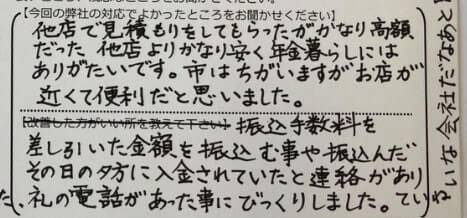 【今回の弊社の対応でよかったところをお聞かせください】
他店で見積もりをしてもらったがかなり高額
だった 他店よりかなり安く年金暮らしには
ありがたいです。市はちがいますがお店が
近くて便利だと思いました。
【改善した方がいい所を教えて下さい】振込手数料を
差し引いた金額を振込む事や振込んだ
その日の夕方に入金されていたと連絡があり
お礼の電話があった事にびっくりしました。ていね
いな会社だなあと
た、